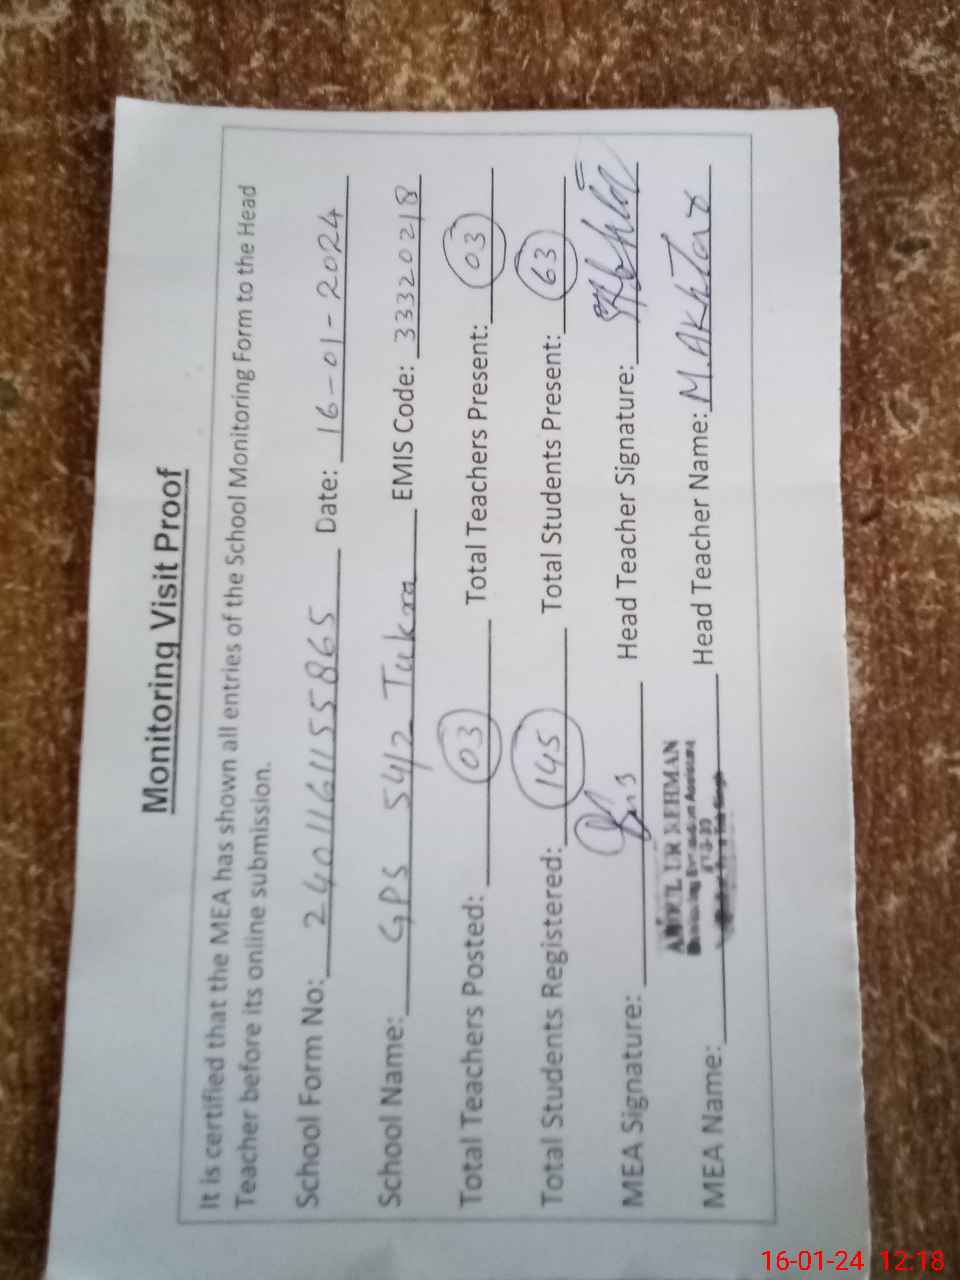 Monitoring Visit Proof
It is certified that the MEA has shown all entries of the School Monitoring Form to the Head
Teacher before its online submission.
School Form No: 2401161155865 Date: 16-01-2024
School Name: GPS 54/2 Tukra EMIS Code: 33320218
Total Teachers Posted: 03 Total Teachers Present: 03
Total Students Registered: 145 Total Students Present: 63
MEA Signature: Head Teacher Signature:
ABDUL UR REHMAN
Monitoring Evaluation Assistant
MEA Name: Head Teacher Name: M. Akhtar
16-01-24 12:18